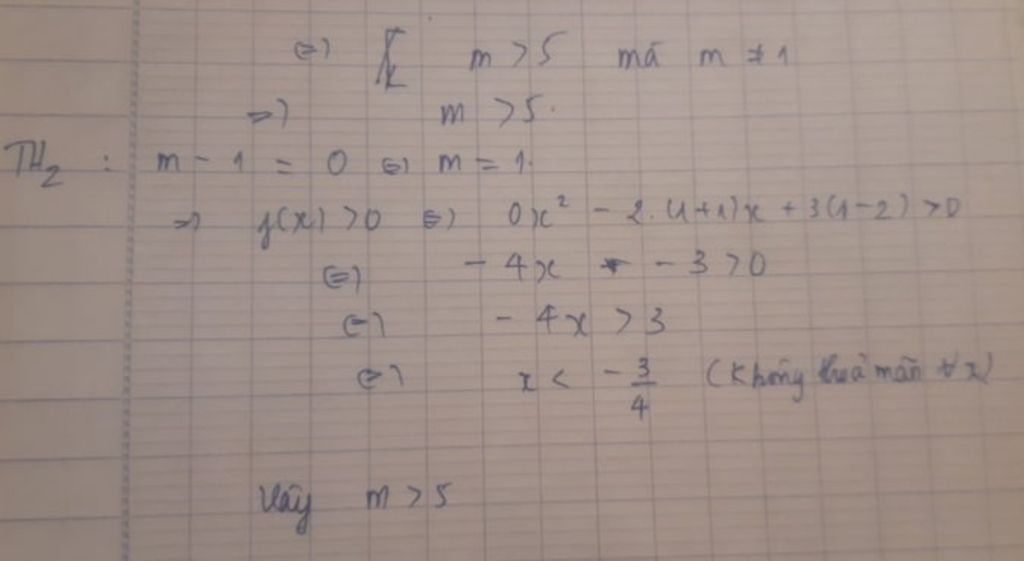 ⇔ m > 5 mà m ≠ 1
⇒ m > 5.
TH₂ : m - 1 = 0 ⇔ m = 1.
⇒ f(x) > 0 ⇔ 0x² - 2.(1+1)x + 3(1-2) > 0
⇔ - 4x - 3 > 0
⇔ - 4x > 3
⇔ x < - 3/4 (không thoả mãn ∀x)
Vậy m > 5